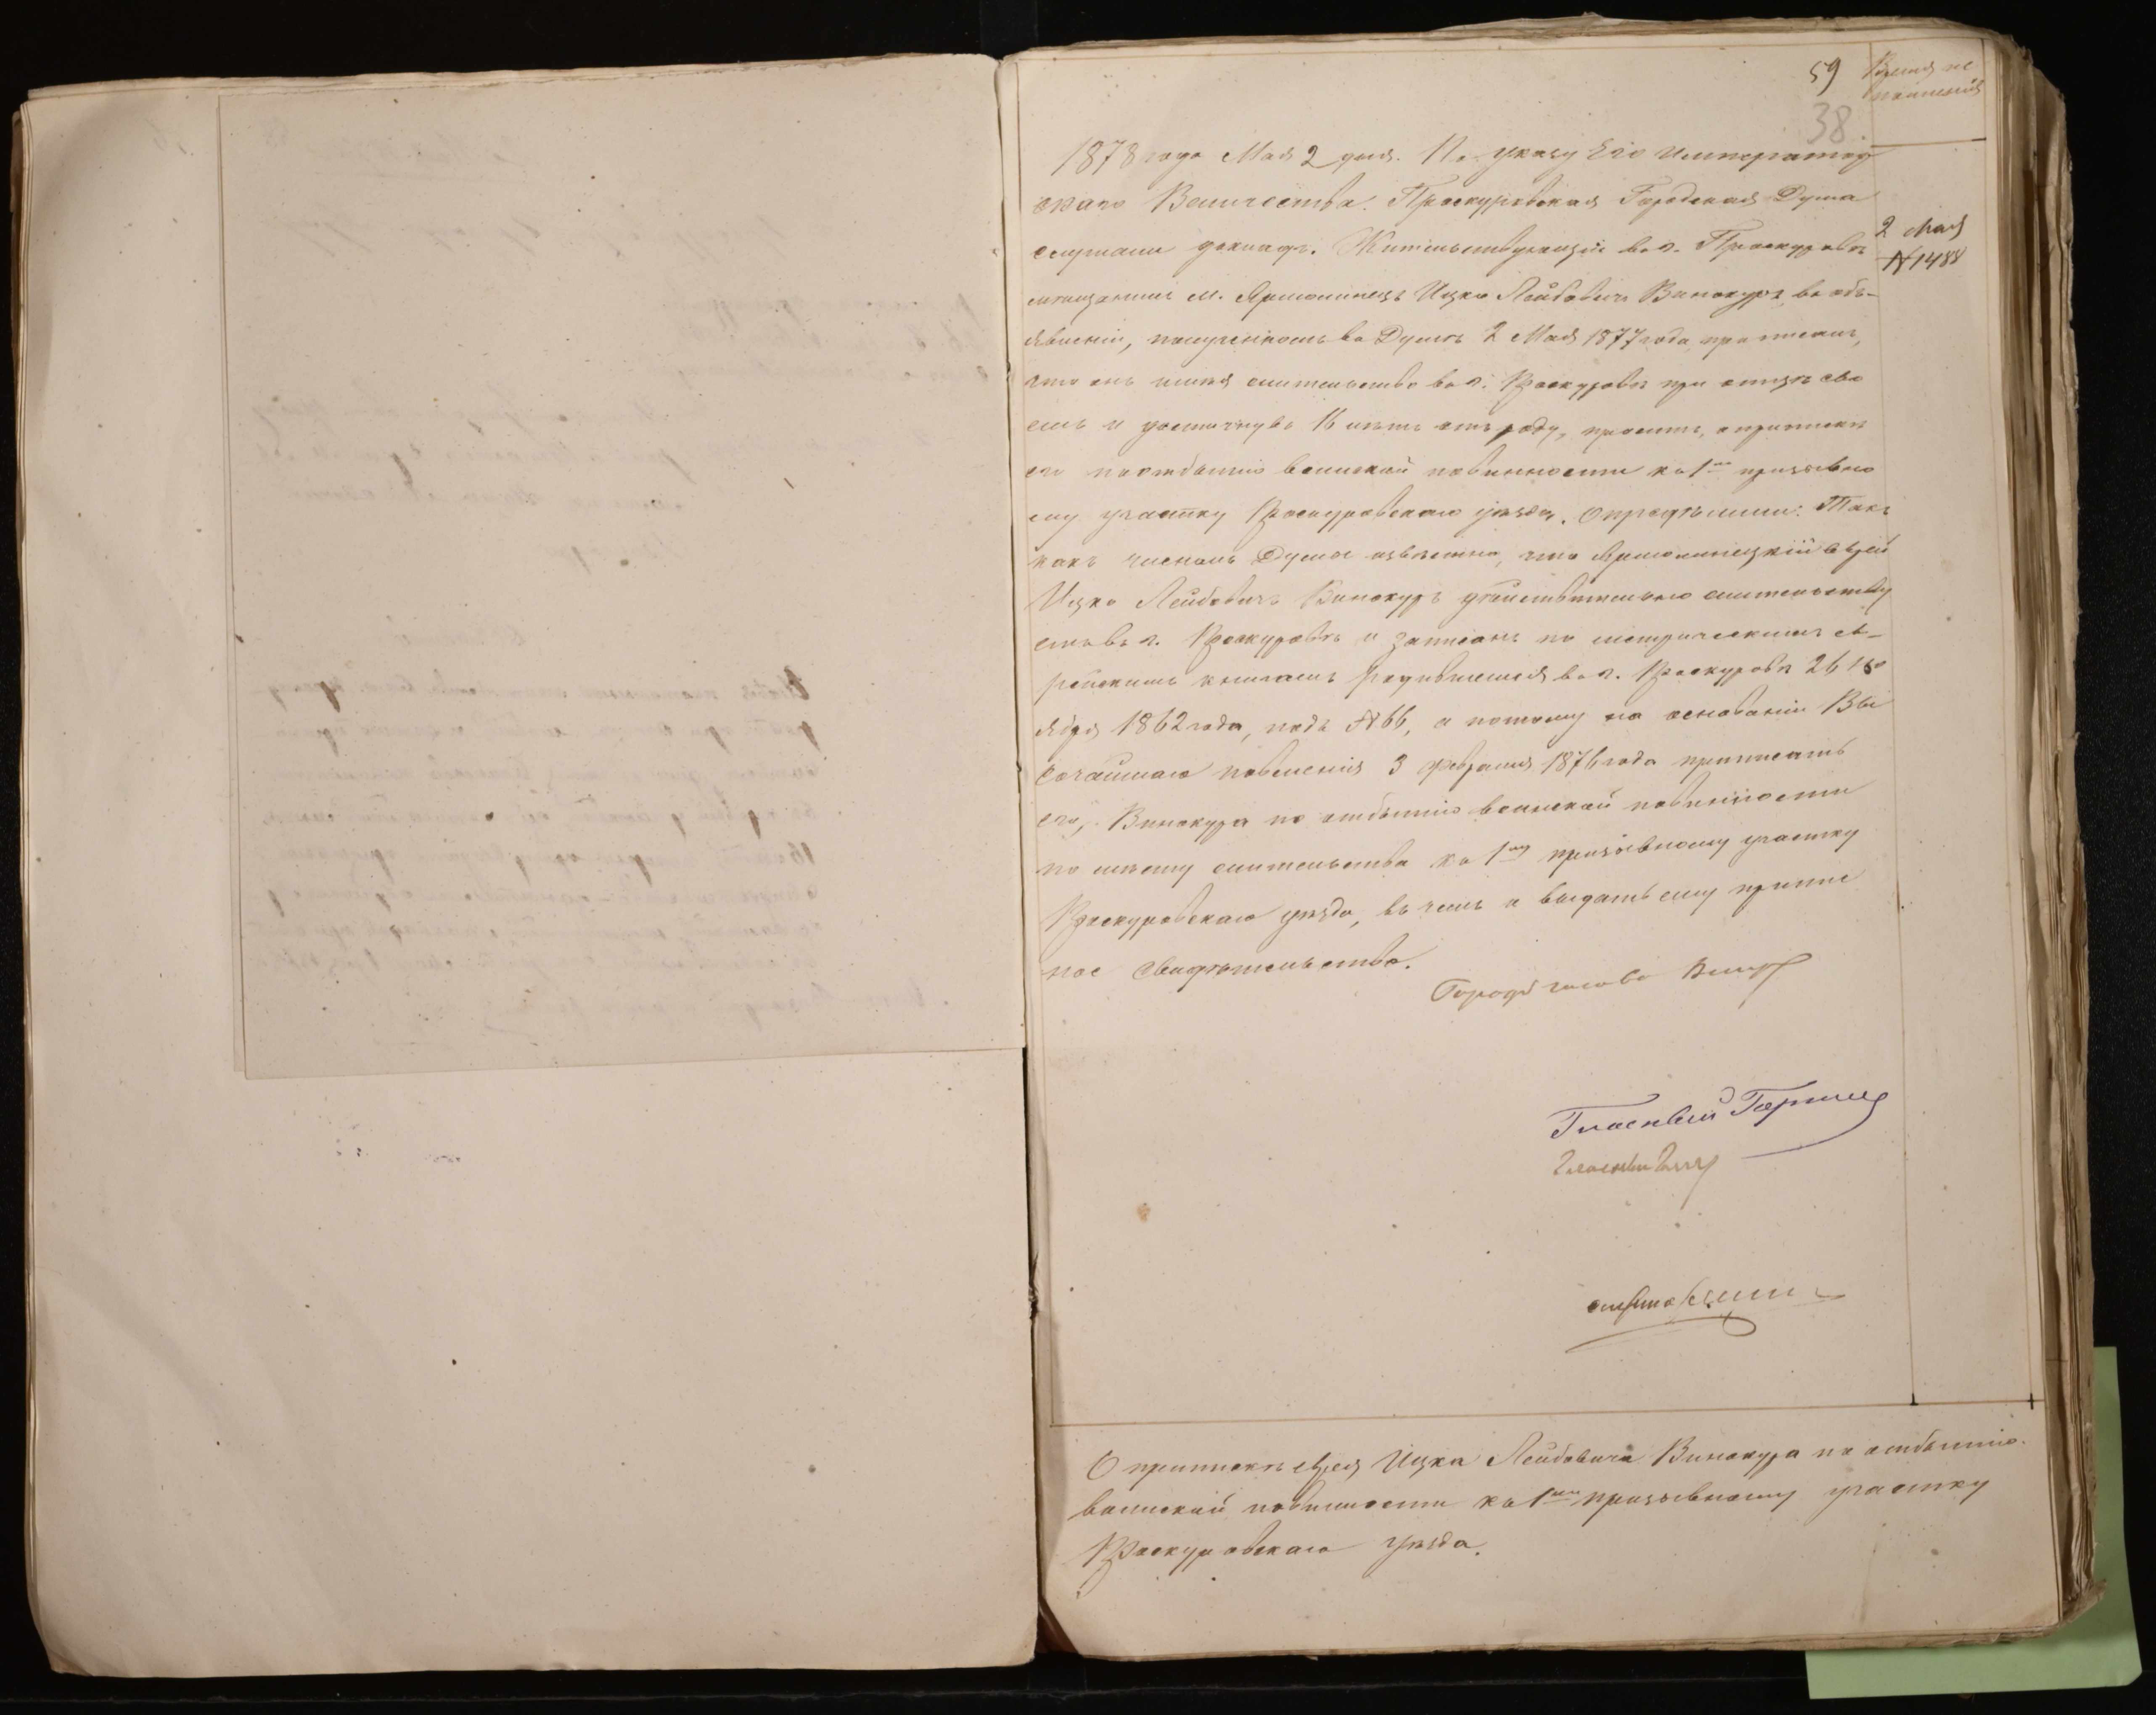 59
Время ис
полненія
38.
1878 года Мая 2 дня. По указу Его Император
скаго Величества. Проскуровская Городская Дума
слушали докладъ. Жительствующій въ г. Проскуровѣ
2 Мая
№ 1488
мѣщанинъ м. Ярмолинецъ Ицко Лейбовичъ Винокуръ, въ объ-
явленіи, полученномъ въ Думѣ 2 Мая 1877 года прописалъ,
что онъ имѣя жительство въ г. Проскуровѣ при отцѣ сво
емъ и достигнувъ 16 лѣтъ отъ роду, проситъ, о припискѣ
его по отбытію воинской повинности къ 1му призывно
му участку Проскуровскаго уѣзда. Опредѣлили: Такъ
какъ членамъ Думы извѣстно, что Ярмолинецкій еврей
Ицко Лейбовичъ Винокуръ дѣйствительно жительству
етъ въ г. Проскуровѣ и записанъ по метрическимъ ев-
рейскимъ книгамъ родившимся въ г. Проскуровѣ 26 Но
ября 1862 года, подъ № 66, а потому на основаніи Вы
сочайшаго повеленія 3 февраля 1876 года приписать
его, Винокура по отбытію воинской повинности
по мѣсту жительства къ 1му призывному участку
Проскуровскаго уѣзда, въ чемъ и выдать ему припис
ное свидѣтельство.
Город. голова
Гласный
Гласный
О припискѣ еврея Ицка Лейбовича Винокура по отбытію
воинской повинности къ 1му призывному участку
Проскуровскаго уѣзда.